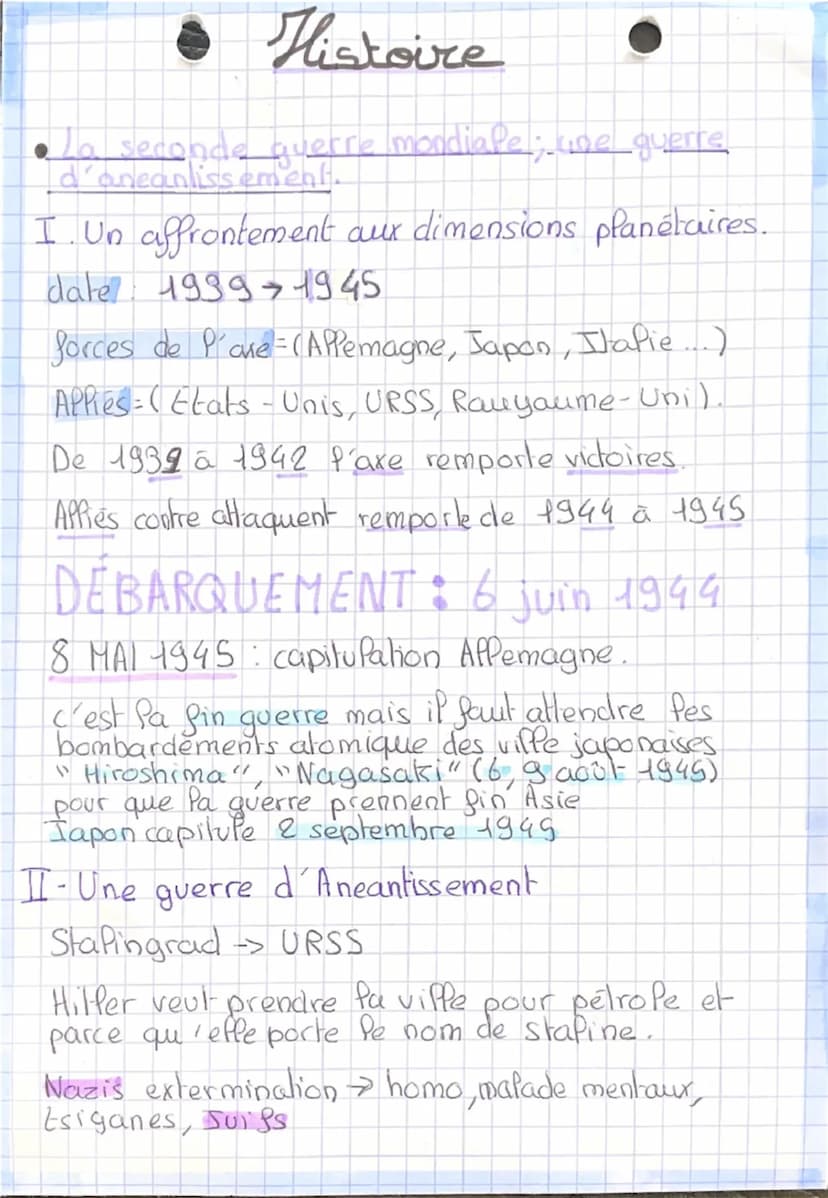 Histoire
• La seconde guerre mondiale ; une guerre
d'aneantissement.
I. Un affrontement aux dimensions planétaires.
date : 1939 → 1945
forces de l'axe = (Allemagne, Japon, Italie ...)
Alliés = ( Etats - Unis, URSS, Rauyaume - Uni ).
De 1939 à 1942 l'axe remporte victoires.
Alliés contre attaquent remporte de 1944 à 1945
DÉBARQUEMENT : 6 juin 1944
8 MAI 1945 : capitulation Allemagne.
c'est la fin guerre mais il faut attendre les
bombardements atomique des ville japonaises
"Hiroshima", "Nagasaki" (6, 9 août 1945)
pour que la guerre prennent fin Asie
Japon capitule 2 septembre 1945
II - Une guerre d'Aneantissement
Stalingrad -> URSS
Hitler veut prendre la ville pour pétrole et
parce qu'elle porte le nom de staline.
Nazis extermination → homo, malade mentaux,
tsiganes, Juifs